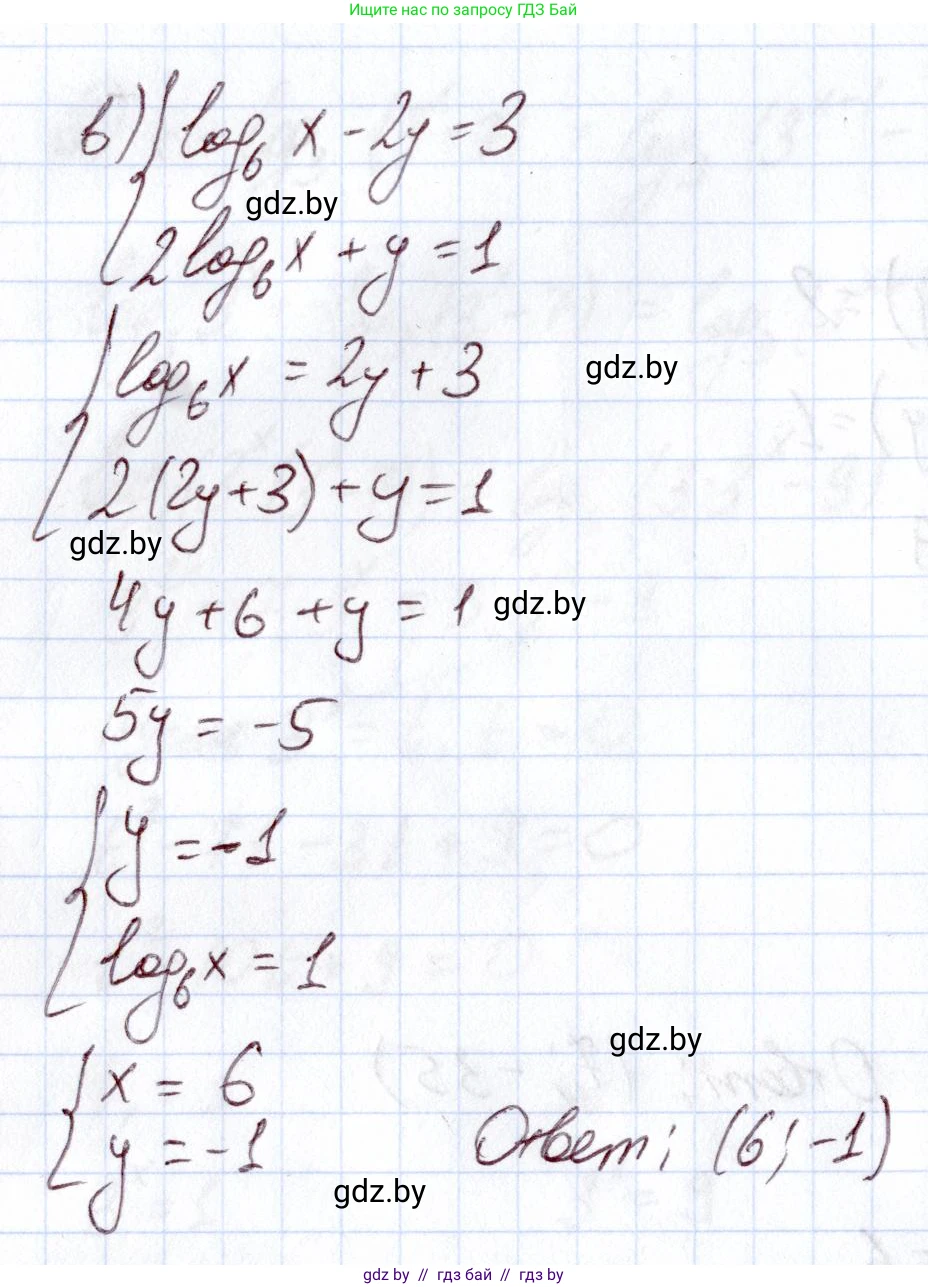 Ищите нас по запросу ГДЗ Бай
в) log₆ x - 2y = 3
gdz.by
2log₆ x + y = 1
log₆ x = 2y + 3
gdz.by
2(2y+3) + y = 1
gdz.by
4y + 6 + y = 1
gdz.by
5y = -5
y = -1
log₆ x = 1
gdz.by
x = 6
y = -1
Ответ: (6; -1)
gdz.by
gdz by // гдз бай // gdz by